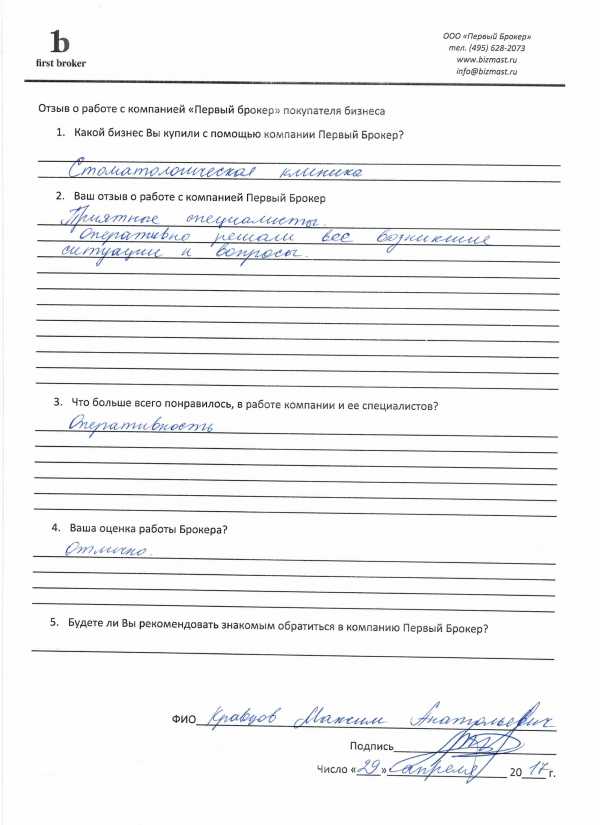 b
first broker
ООО «Первый Брокер»
тел. (495) 628-2073
www.bizmast.ru
info@bizmast.ru
Отзыв о работе с компанией «Первый брокер» покупателя бизнеса
1. Какой бизнес Вы купили с помощью компании Первый Брокер?
Стоматологическая клиника
2. Ваш отзыв о работе с компанией Первый Брокер
Приятные специалисты.
Оперативно решали все возникшие
ситуации и вопросы.
3. Что больше всего понравилось, в работе компании и ее специалистов?
Оперативность
4. Ваша оценка работы Брокера?
Отлично.
5. Будете ли Вы рекомендовать знакомым обратиться в компанию Первый Брокер?
ФИО Кравцов Максим Анатольевич
Подпись
Число «29» апреля 2017 г.